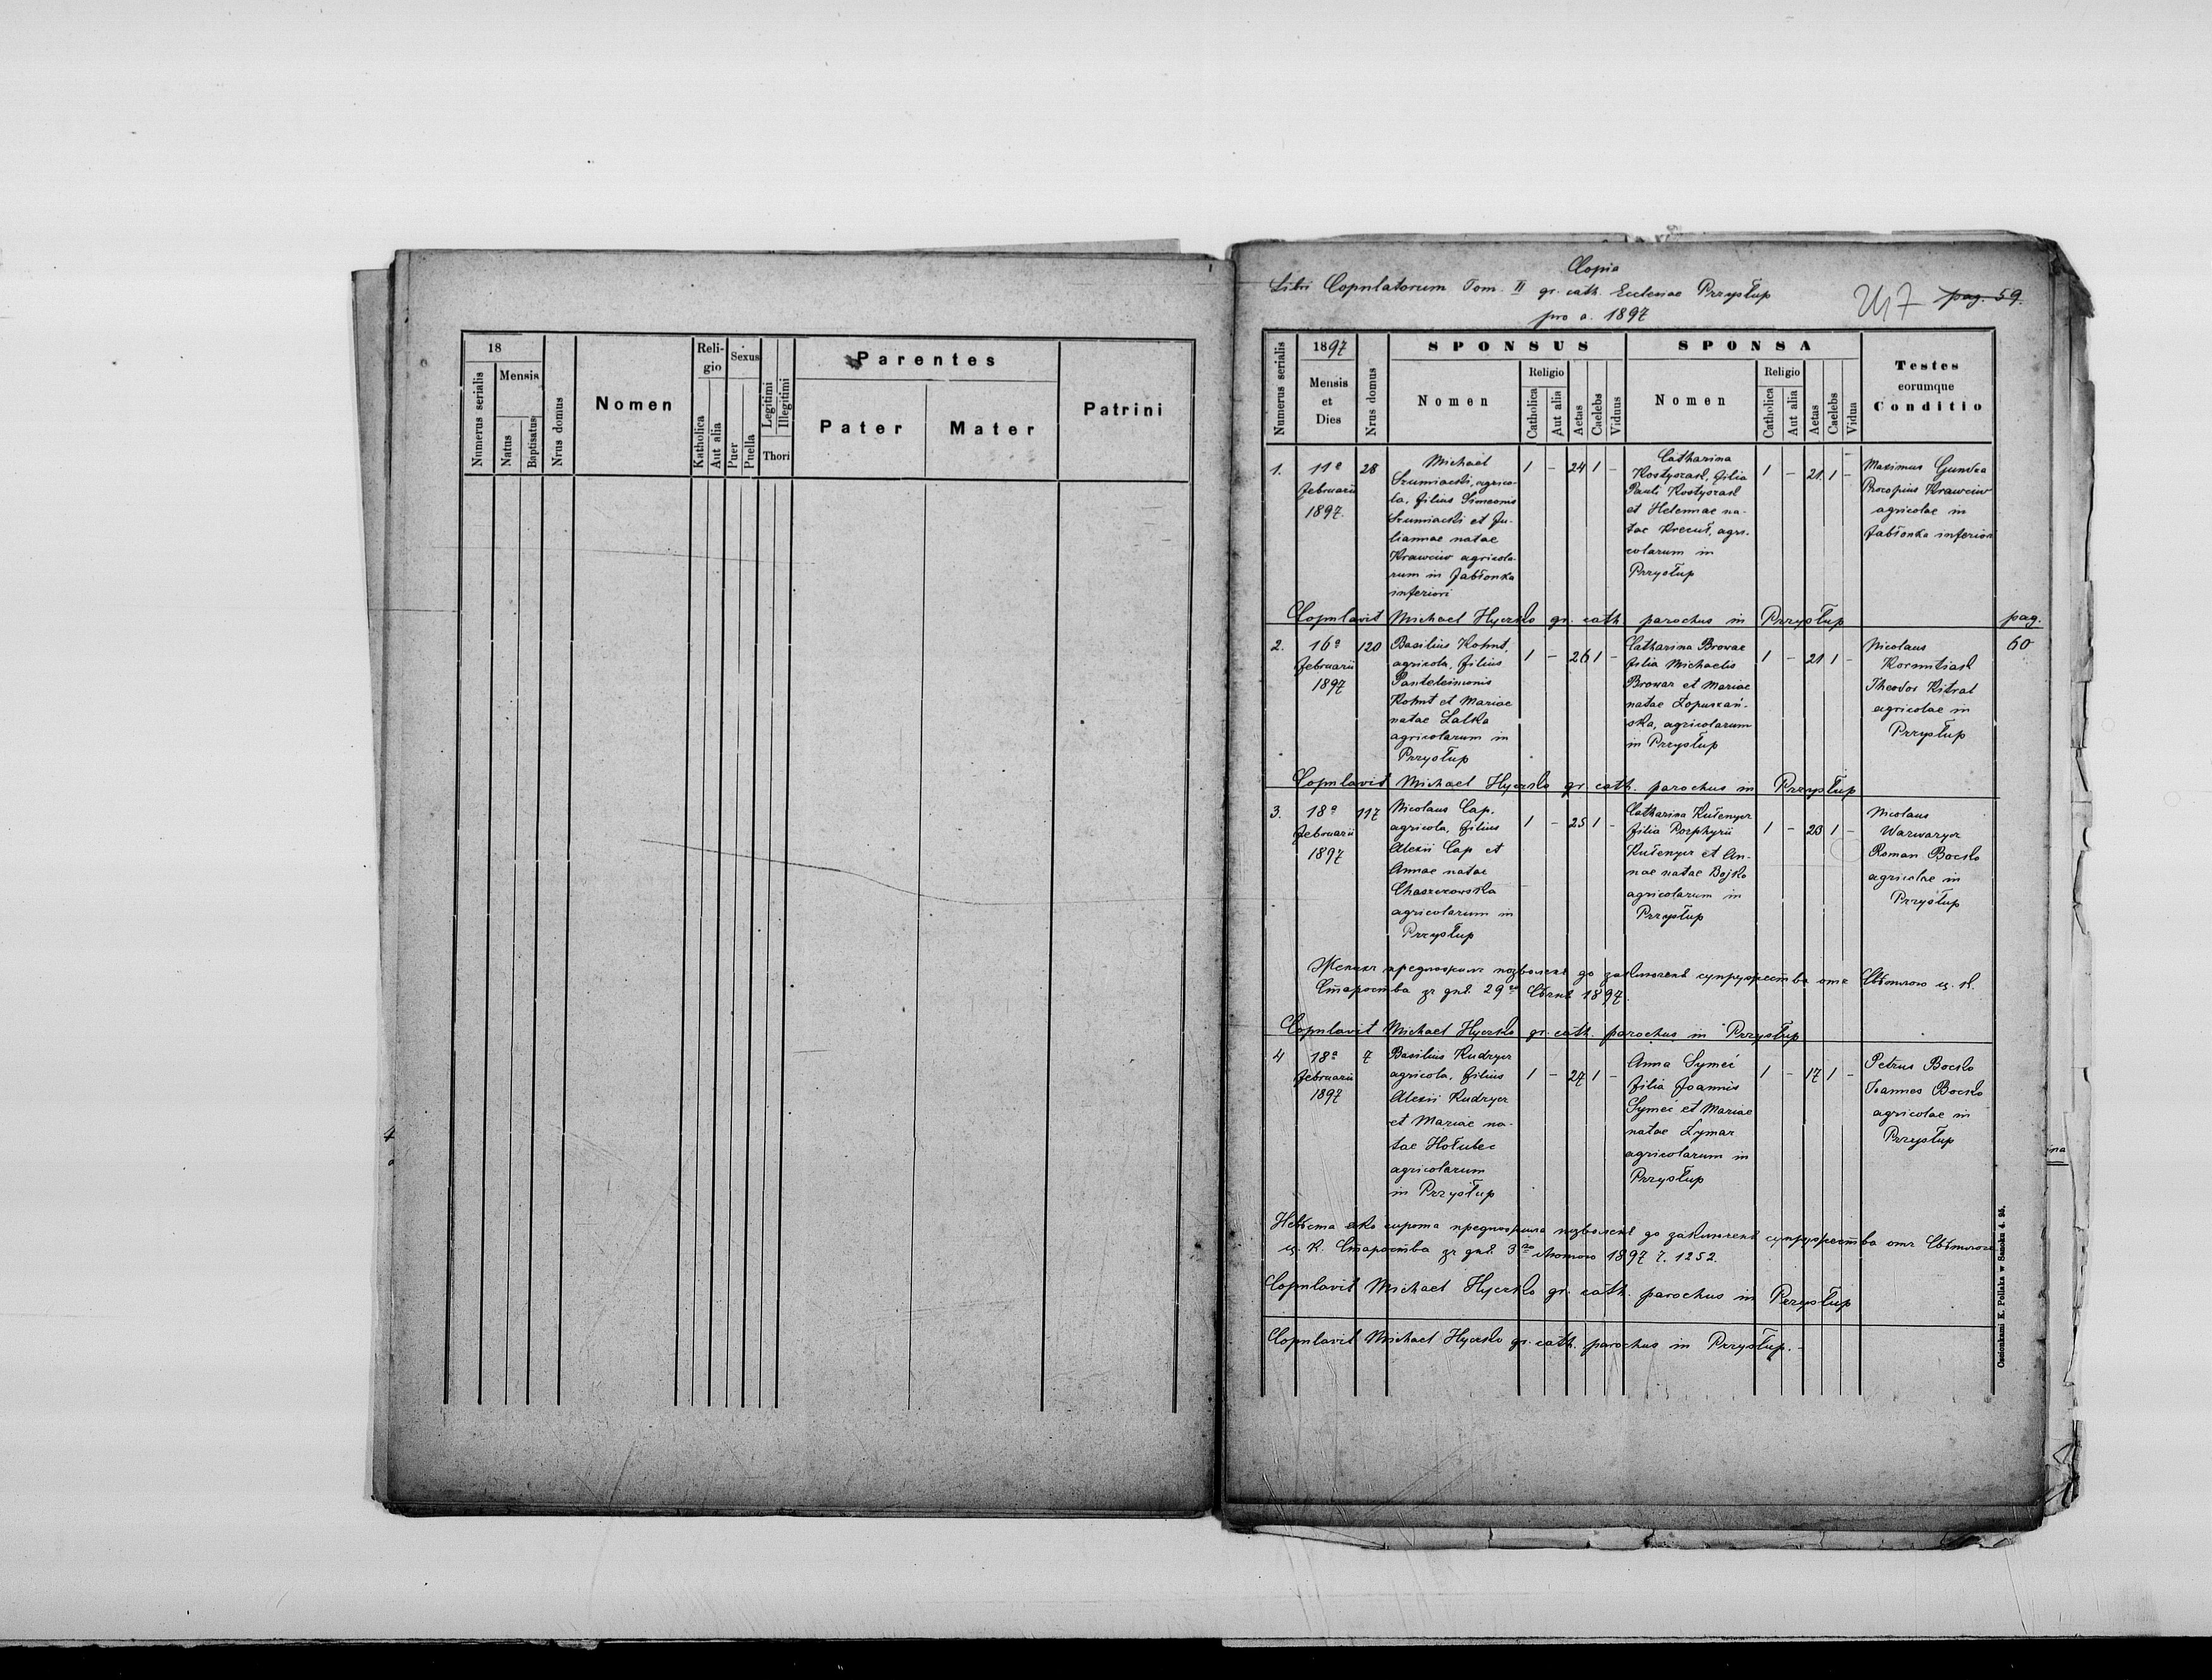 18
Mensis
Numerus serialis
Natus
Baptisatus
Nrus domus
Nomen
Religio
Katholica
Aut alia
Sexus
Puer
Puella
Legitimi
Illegitimi
Thori
Parentes
Pater
Mater
Patrini
Copia
Libri Copulatorum Tom. II gr. cath. Ecclesiae Przysłup
pro a. 1897
247
pag. 59.
Numerus serialis
1897
Mensis
et
Dies
Nrus domus
SPONSUS
Nomen
Religio
Catholica
Aut alia
Aetas
Caelebs
Viduus
SPONSA
Nomen
Religio
Catholica
Aut alia
Aetas
Caelebs
Vidua
Testes
eorumque
Conditio
1.
11a
Februarii
1897.
28
Michael
Szumiacki, agrico-
la, filius Simeonis
Szumiacki et Ju-
liannae natae
Krawciw agricola-
rum in Jabłonka
inferiori
1 - 24 1 -
Catharina
Kostyszak, filia
Pauli Kostyszak
et Helennae na-
tae, agri-
colarum in
Przysłup
1 - 21. 1 -
Maximus Gundza
Procopius Krawciw
agricolae in
Jabłonka inferiori
Copulavit Michael Hyczko gr. cath. parochus in Przysłup
pag.
60
2.
16a
Februarii
1897
120
Basilius Kohut,
agricola, filius
Panteleimonis
Kohut et Mariae
natae Lalka
agricolarum in
Przysłup
1 - 26 1 -
Catharina Browar
filia Michaelis
Browar et Mariae
natae Łopuszań-
ska, agricolarum
in Przysłup
1 - 21 1 -
Nicolaus
Kornutiak
Theodor Kitral
agricolae in
Przysłup
Copulavit Michael Hyczko gr. cath. parochus in Przysłup
3.
18a
Februarii
1897
117
Nicolaus Cap,
agricola, filius
Alexii Cap et
Annae natae
Chaszczowska
agricolarum in
Przysłup
1 - 25 1 -
Catharina Kułenycz
filia Porphyrii
Kułenycz et An-
nae natae Bojko
agricolarum in
Przysłup
1 - 23 1 -
Nicolaus
Warwarycz
Roman Bocsko
agricolae in
Przysłup
Женихъ предложилъ позволенє до заключеня супружества отъ Свѣтлого ц. к.
Староства зъ дня 29го Сѣчня 1897.
Copulavit Michael Hyczko gr. cath. parochus in Przysłup
4
18a
Februarii
1897
7
Basilius Kudrycz
agricola, filius
Alexii Kudrycz
et Mariae na-
tae Hołubec
agricolarum
in Przysłup
1 - 27 1 -
Anna Symeć
filia Joannis
Symeć et Mariae
natae Łymar
agricolarum in
Przysłup
1 - 17 1 -
Petrus Bocsko
Joannes Bocsko
agricolae in
Przysłup
Невѣста яко сирота предложила позволенє до заключеня супружества отъ Свѣтлого
ц. к. Староства зъ дня 3го Лютого 1897 ч. 1252.
Copulavit Michael Hyczko gr. cath. parochus in Przysłup
Copulavit Michael Hyczko gr. cath. parochus in Przysłup.
Czcionkami K. Pollaka w Sanoku 4. 95.